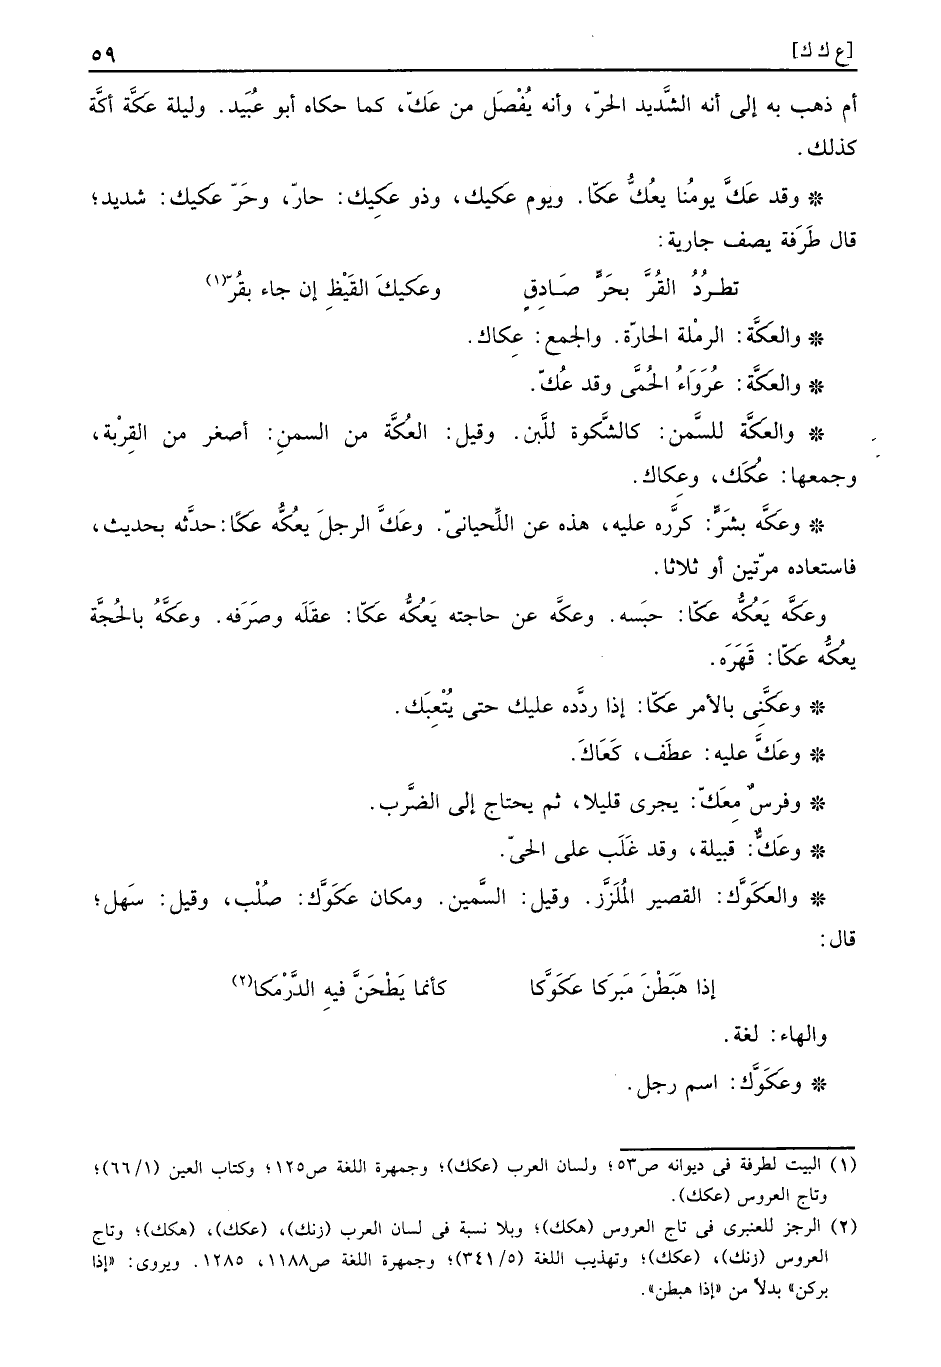 [ع ك ك] ٥٩
أم ذهب به إلى أنه الشَّديد الحرّ، وأنه يُفْصَل من عَكّ، كما حكاه أبو عُبَيد. وليلة عَكَّة أكَّة
كذلك.
❊ وقد عَكَّ يومُنا يعُكُّ عكّا. ويوم عَكِيك، وذو عَكِيك: حارّ، وحَرّ عَكِيك: شديد؛
قال طَرَفة يصف جارية:
تطـرُدُ القُرَّ بحَرٍّ صَـادِقٍ وعَكيكَ القَيْظِ إن جاء بقُرّ(١)
❊ والعَكَّة: الرمْلة الحارّة. والجمع: عِكاك.
❊ والعَكَّة: عُرَوَاءُ الحُمَّى وقد عُكّ.
❊ والعكَّة للسَّمن: كالشَّكوة للَّبن. وقيل: العُكَّة من السمنِ: أصغر من القِرْبة،
وجمعها: عُكَك، وعِكاك.
❊ وعكَّه بشَرٍّ: كرَّره عليه، هذه عن اللِّحيانىّ. وعَكَّ الرجلَ يعُكّه عكّا: حدَّثه بحديث،
فاستعاده مرّتين أو ثلاثا.
وعكَّه يَعُكُّه عَكّا: حبَسه. وعكَّه عن حاجته يَعُكُّه عكّا: عقلَه وصرَفه. وعكَّهُ بالحُجَّة
يعكُّه عكّا: قَهَرَه.
❊ وعكَّنِى بالأمر عَكّا: إذا ردَّده عليك حتى يُتْعِبَك.
❊ وعَكَّ عليه: عطَف، كَعَاكَ.
❊ وفرسٌ مِعَكّ: يجرى قليلا، ثم يحتاج إلى الضَّرب.
❊ وعَكٌّ: قبيلة، وقد غَلَب على الحىّ.
❊ والعكَوَّك: القصير المُلَزَّز. وقيل: السَّمين. ومكان عكَوَّك: صُلْب، وقيل: سَهل؛
قال:
إذا هَبَطْنَ مَبرَكا عكَوَّكا كأنما يَطْحَنَّ فيهِ الدَّرْمَكا(٢)
والهاء: لغة.
❊ وعَكَوَّك: اسم رجل.
(١) البيت لطرفة فى ديوانه ص٥٣؛ ولسان العرب (عكك)؛ وجمهرة اللغة ص١٢٥؛ وكتاب العين (٦٦/١)؛
وتاج العروس (عكك).
(٢) الرجز للعنبرى فى تاج العروس (هكك)؛ وبلا نسبة فى لسان العرب (زنك)، (عكك)، (هكك)؛ وتاج
العروس (زنك)، (عكك)؛ وتهذيب اللغة (٣٤١/٥)؛ وجمهرة اللغة ص١١٨٨، ١٢٨٥. ويروى: «إذا
بركن» بدلاً من «إذا هبطن».